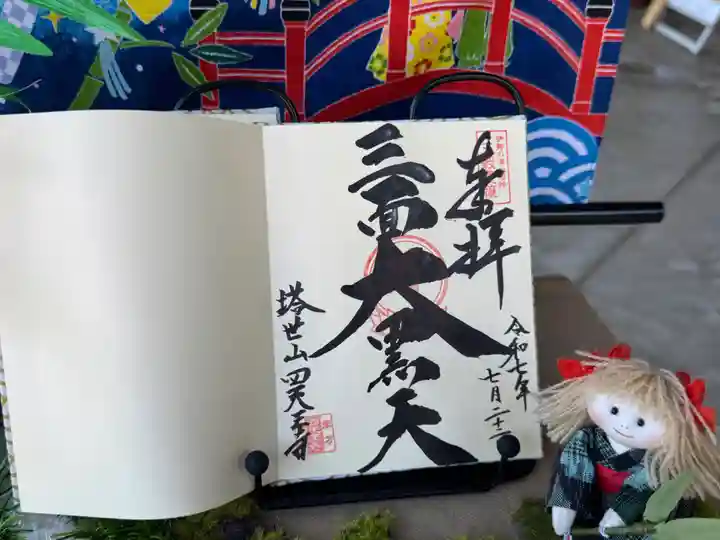 奉拝
令和七年
七月二十二
三面大黒天
塔世山四天王寺